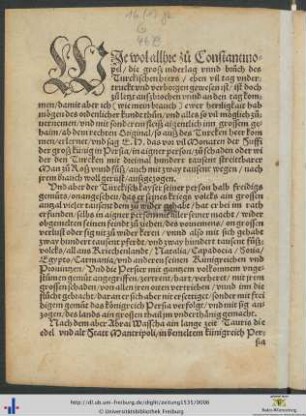 Wie wol alhie zů Constantino-
pel / die groß niderlag vnnd bruch des
Turckischen heers / eben vil tag vnder-
truckt vnd verborgen gewesen ist / ist doch
zů letzt außbrochen vnnd an den tag kom-
men / damit aber ich ( wie mein brauch ) ewer herligkait hab
mügen des ordenlicher kundt thůn / vnd alles so vil müglich zů-
uernemen / vnd mit sonderem fleiß
ab dem rechten Original / so auß des Turcken heer kom
men / erlernet / vnd sag E. H. das vor vil Monaten der Jüssi
der groß künig in Persia / in aigner person / zů schaden oder wi
der den Turcken mit dreimal hundert tausent streitbarer
Man zů Roß vnnd füß / auch mit zway tausent wegen / nach
jrem brauch woll gerüst / außgezogen.
Vnd aber der Turckisch kayser seiner person halb fraidigs
gemüts / vnangesehen / das er seines kriegs volcks ain grossen
anzal vi̇l̇er tausent zů wider gehabt / hat er bei im
erfunden / selbs in aigner person
obgemelten seinen feindt zů ziehen / des vornemens / on grossen
verlust oder sig nit zů wider keren / vnnd also mit sich gehabt
zway hundert tausent pferdt / vnd zway hundert tausent füß-
volcks / all aus Kriechenlandt / Natalia / Capadocia / Soria /
Egypto / Carmania / vnd anderen seinen Künigreichen vnd
Prouintzen / Vnd die Perser mit gantzem volkommen vngu-
stüm gemüt angegriffen / zertrent / hart / verhert / mit jrem
grossen schaden / von allen jren orten vertriben / vnnd jnn die
flucht gebracht / daran er sich aber nit ersettiget / sonder mit frai
digem gemüt das künigreich Persia verfolgt / vnd mit sig
zogen / des lands ain grossen thail jm vnderthänig gemacht.
Nach dem aber Abrai Wasscha ain lange zeit Tauris die
edel vnd alt Statt Mantripoli / in bemeltem künigreich Per-
sia
http://dl.ub.uni-freiburg.de/diglit/zeitung1535/0006
© Universitätsbibliothek Freiburg